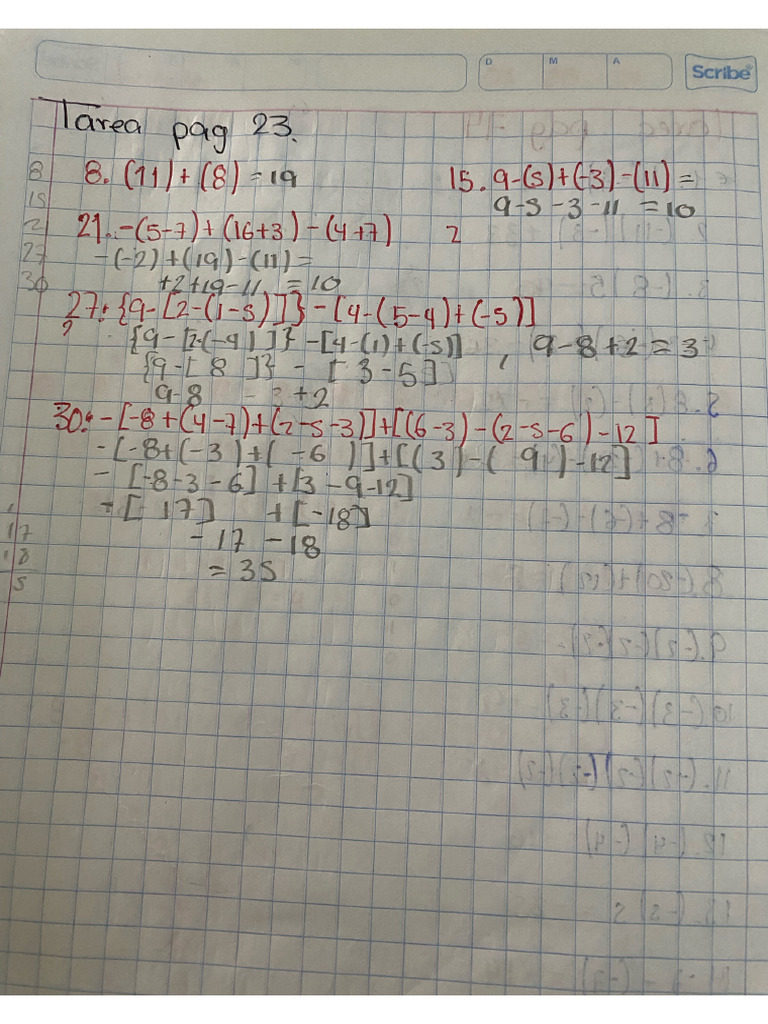 D M A Scribe
Tarea pag 23.
8. (11)+(8)=19
15. 9-(5)+(-3)-(11)=
9-5-3-11=10
21. -(5-7)+(16+3)-(4+7)
2
-(-2)+(19)-(11)=
+2+19-11=10
27. {9-[2-(1-5)]}-[4-(5-4)+(-5)]
?
{9-[2-(-4)]}-[4-(1)+(-5)], 9-8+2=3
{9-[8]}-[3-5]
9-8 -3+2
30. -[-8+(4-7)+(2-5-3)]+[(6-3)-(2-5-6)-12]
-[-8+(-3)+(-6)]+[(3)-(9)-12]
-[-8-3-6]+[3-9-12]
-[17]+[-18]
-17-18
=35
8
15
21
27
30
17
18
5